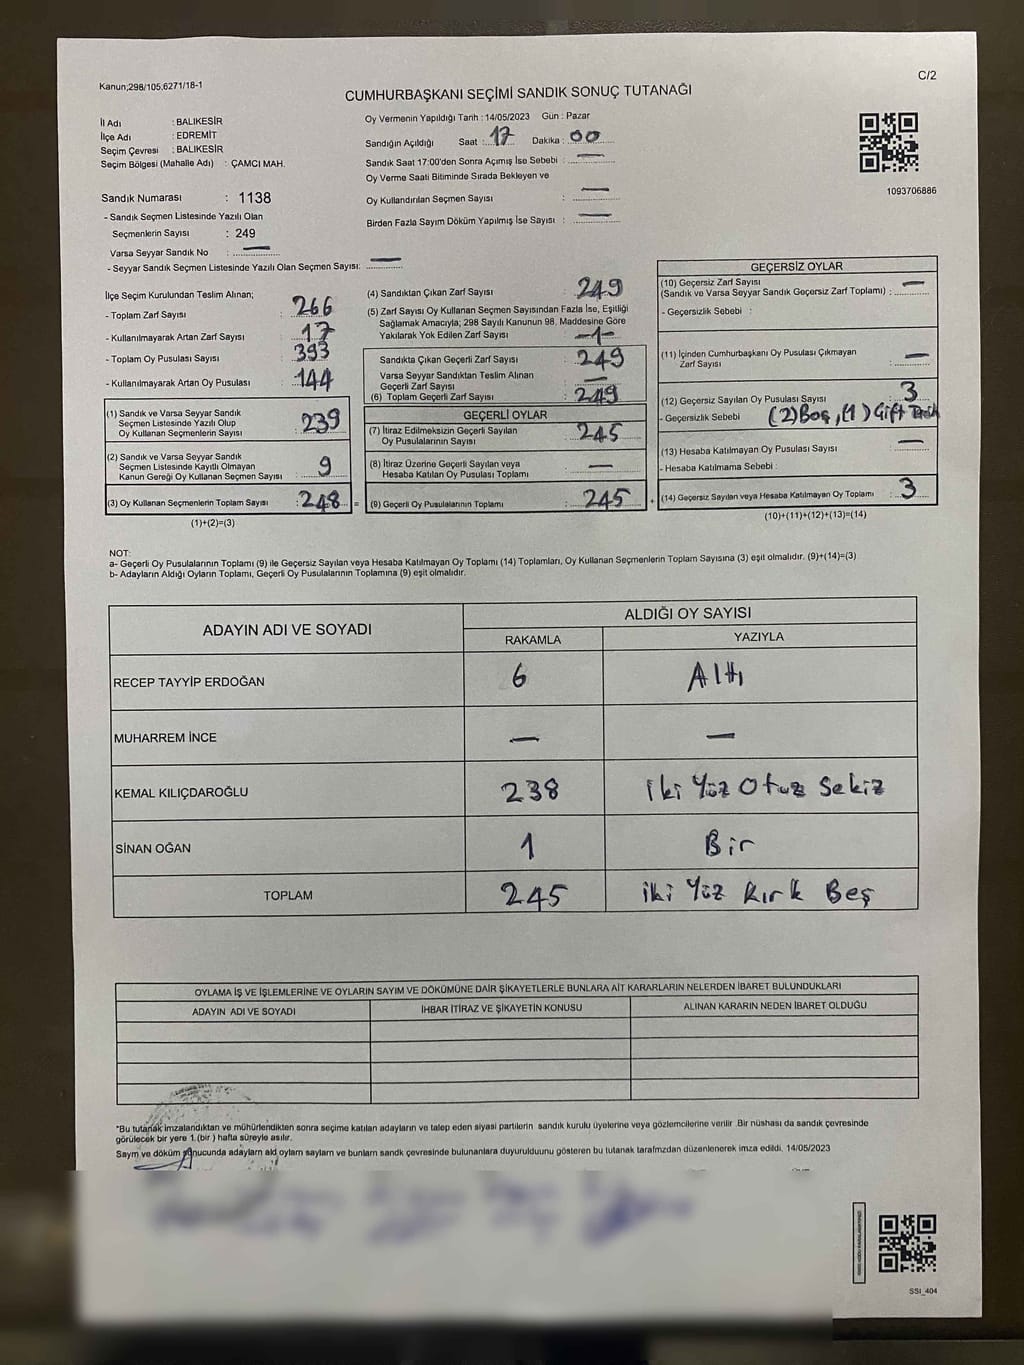 Kanun;298/105;6271/18-1
C/2
CUMHURBAŞKANI SEÇİMİ SANDIK SONUÇ TUTANAĞI
İl Adı : BALIKESİR
İlçe Adı : EDREMİT
Seçim Çevresi : BALIKESİR
Seçim Bölgesi (Mahalle Adı) : ÇAMCI MAH.
Oy Vermenin Yapıldığı Tarih : 14/05/2023 Gün : Pazar
Sandığın Açıldığı Saat : 17 Dakika : 00
Sandık Saat 17:00'den Sonra Açımış İse Sebebi : —
Oy Verme Saati Bitiminde Sırada Bekleyen ve
Oy Kullandırılan Seçmen Sayısı : —
Birden Fazla Sayım Döküm Yapılmış İse Sayısı : —
1093706886
Sandık Numarası : 1138
- Sandık Seçmen Listesinde Yazılı Olan
Seçmenlerin Sayısı : 249
Varsa Seyyar Sandık No : —
- Seyyar Sandık Seçmen Listesinde Yazılı Olan Seçmen Sayısı: —
İlçe Seçim Kurulundan Teslim Alınan;
- Toplam Zarf Sayısı : 266
- Kullanılmayarak Artan Zarf Sayısı : 17
- Toplam Oy Pusulası Sayısı : 393
- Kullanılmayarak Artan Oy Pusulası : 144
(1) Sandık ve Varsa Seyyar Sandık
Seçmen Listesinde Yazılı Olup
Oy Kullanan Seçmenlerin Sayısı : 239
(2) Sandık ve Varsa Seyyar Sandık
Seçmen Listesinde Kayıtlı Olmayan
Kanun Gereği Oy Kullanan Seçmen Sayısı : 9
(3) Oy Kullanan Seçmenlerin Toplam Sayısı : 248 =
(1)+(2)=(3)
(4) Sandıktan Çıkan Zarf Sayısı : 249
(5) Zarf Sayısı Oy Kullanan Seçmen Sayısından Fazla İse, Eşitliği
Sağlamak Amacıyla; 298 Sayılı Kanunun 98. Maddesine Göre
Yakılarak Yok Edilen Zarf Sayısı : —1—
Sandıkta Çıkan Geçerli Zarf Sayısı : 249
Varsa Seyyar Sandıktan Teslim Alınan
Geçerli Zarf Sayısı : —
(6) Toplam Geçerli Zarf Sayısı : 249
GEÇERLİ OYLAR
(7) İtiraz Edilmeksizin Geçerli Sayılan
Oy Pusulalarının Sayısı : 245
(8) İtiraz Üzerine Geçerli Sayılan veya
Hesaba Katılan Oy Pusulası Toplamı : —
(9) Geçerli Oy Pusulalarının Toplamı : 245 +
GEÇERSİZ OYLAR
(10) Geçersiz Zarf Sayısı
(Sandık ve Varsa Seyyar Sandık Geçersiz Zarf Toplamı) : —
- Geçersizlik Sebebi :
(11) İçinden Cumhurbaşkanı Oy Pusulası Çıkmayan
Zarf Sayısı : —
(12) Geçersiz Sayılan Oy Pusulası Sayısı : 3
- Geçersizlik Sebebi (2) Boş, (1) Çift
(13) Hesaba Katılmayan Oy Pusulası Sayısı : —
- Hesaba Katılmama Sebebi :
(14) Geçersiz Sayılan veya Hesaba Katılmayan Oy Toplamı : 3
(10)+(11)+(12)+(13)=(14)
NOT:
a- Geçerli Oy Pusulalarının Toplamı (9) ile Geçersiz Sayılan veya Hesaba Katılmayan Oy Toplamı (14) Toplamları, Oy Kullanan Seçmenlerin Toplam Sayısına (3) eşit olmalıdır. (9)+(14)=(3)
b- Adayların Aldığı Oyların Toplamı, Geçerli Oy Pusulalarının Toplamına (9) eşit olmalıdır.
ADAYIN ADI VE SOYADI
ALDIĞI OY SAYISI
RAKAMLA YAZIYLA
RECEP TAYYİP ERDOĞAN 6 Altı
MUHARREM İNCE — —
KEMAL KILIÇDAROĞLU 238 iki Yüz Otuz Sekiz
SİNAN OĞAN 1 Bir
TOPLAM 245 iki Yüz Kırk Beş
OYLAMA İŞ VE İŞLEMLERİNE VE OYLARIN SAYIM VE DÖKÜMÜNE DAİR ŞİKAYETLERLE BUNLARA AİT KARARLARIN NELERDEN İBARET BULUNDUKLARI
ADAYIN ADI VE SOYADI İHBAR İTİRAZ VE ŞİKAYETİN KONUSU ALINAN KARARIN NEDEN İBARET OLDUĞU
*Bu tutanak imzalandıktan ve mühürlendikten sonra seçime katılan adayların ve talep eden siyasi partilerin sandık kurulu üyelerine veya gözlemcilerine verilir .Bir nüshası da sandık çevresinde
görülecek bir yere 1.(bir ) hafta süreyle asılır.
Saym ve döküm sonucunda adaylarn ald oylarn saylarn ve bunlarn sandk çevresinde bulunanlara duyurulduunu gösteren bu tutanak tarafmzdan düzenlenerek imza edildi. 14/05/2023
SSI_404